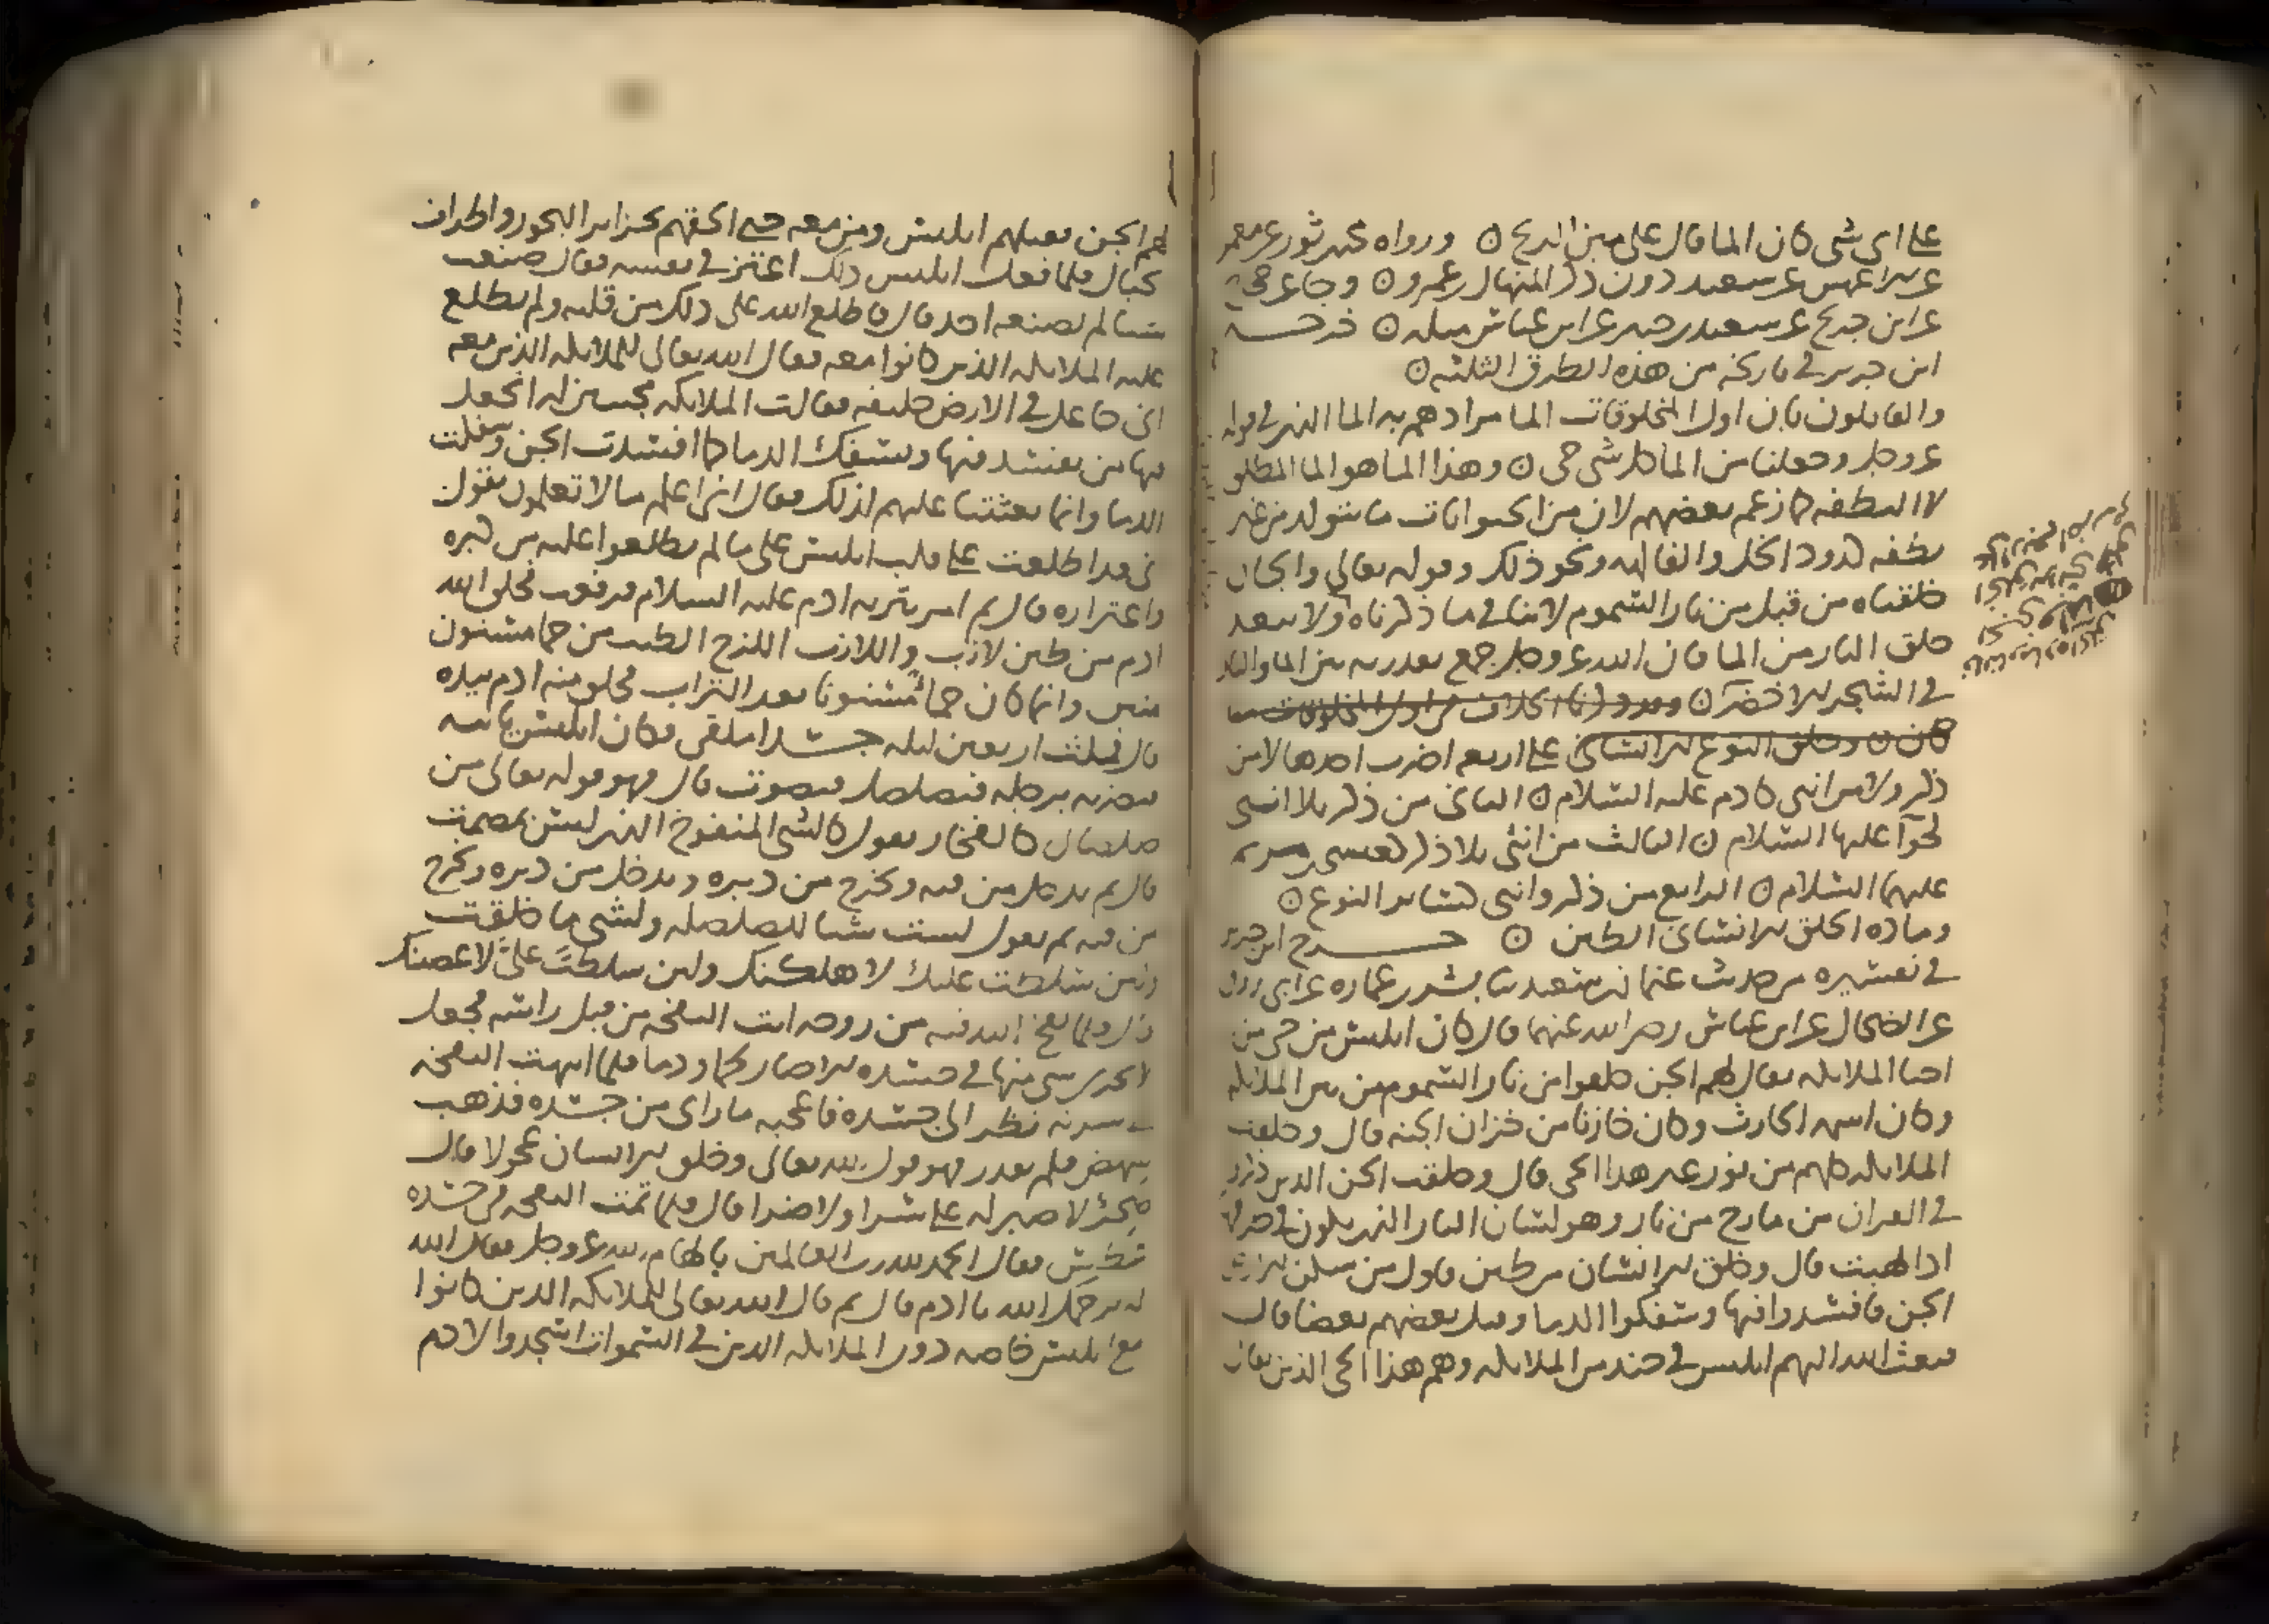 على اى شى كان الما قال على متن الريح ورواه محمد بن ثور عن معمر
عن الاعمش عن سعيد دون ذكر المنهال بن عمرو وجا عن حجاج
عن ابن جريج عن سعيد بن جبير عن ابن عباس مثله خرجه
ابن جرير في تاريخه من هذه الطرق الثلثه
والقايلون بان اول المخلوقات الما مرادهم به الما الذي في قوله
عز وجل وجعلنا من الما كل شى حى وهذا الما هو الما المطلق
لا النطفه كما زعم بعضهم لان من الحيوانات ما يتولد من غير
نطفه كدود الخل والفاكهه ونحو ذلك وقوله تعالى والجان
خلقناه من قبل من نار السموم لا ينافي ما ذكرناه ولا يبعد
خلق النار من الما فان الله عز وجل جمع بقدرته بين الما والنار
في الشجر الاخضر وقد ذكرنا الخلاف في اول المخلوقات ما
كان وخلق النوع الانسانى على اربعه اضرب احدها لا من
ذكر ولا من انثى كادم عليه السلام الثانى من ذكر بلا انثى
كحوآ عليها السلام الثالث من انثى بلا ذكر كعيسى بن مريم
عليهما السلام الرابع من ذكر وانثى كسائر النوع
وماده الخلق الانسانى الطين خرج ابن جرير
في تفسيره من حديث عثمان بن سعيد ثنا بشر بن عماره عن ابى روق
عن الضحاك عن ابن عباس رضى الله عنهما قال كان ابليس من حى من
احيا الملايكه يقال لهم الجن خلقوا من نار السموم من بين الملايكه
وكان اسمه الحارث وكان خازنا من خزان الجنه قال وخلقت
الملايكه كلهم من نور غير هذا الحى قال وخلقت الجن الذين ذكروا
في القران من مارج من نار وهو لسان النار الذي يكون في طرفها
اذا لهبت قال وخلق الانسان من طين فاول من سكن الارض
الجن فافسدوا فيها وسفكوا الدما وقتل بعضهم بعضا قال
فبعث الله اليهم ابليس في جند من الملايكه وهم هذا الحى الذين يقال
لهم الجن فقتلهم ابليس ومن معه حتى الحقهم بجزاير البحور واطراف
الجبال فلما فعل ابليس ذلك اغتر في نفسه فقال صنعت
شيا لم يصنعه احد قال فاطلع الله على ذلك من قلبه ولم يطلع
عليه الملايكه الذين كانوا معه فقال الله تعالى للملايكه الذين معه
انى جاعل في الارض خليفه فقالت الملايكه مجيبين له اتجعل
فيها من يفسد فيها ويسفك الدما كما افسدت الجن وسفكت
الدما وانما بعثتنا عليهم لذلك فقال انى اعلم ما لا تعلمون يقول
انى قد اطلعت على قلب ابليس على ما لم تطلعوا عليه من كبره
واغتراره قال ثم امر بتربه ادم عليه السلام فرفعت فخلق الله
ادم من طين لازب واللازب اللزج الطيب من حما مسنون
منتن وانما كان حما مسنونا بعد التراب فخلق منه ادم بيده
قال فمكث اربعين ليله جسدا ملقى فكان ابليس ياتيه
فيضربه برجله فيصلصل فيصوت قال فهو قوله تعالى من
صلصال كالفخار يقول كالشى المنفوخ الذي ليس بمصمت
قال ثم يدخل من فيه ويخرج من دبره ويدخل من دبره ويخرج
من فيه ثم يقول لست شيا للصلصله ولشى ما خلقت
ولئن سلطت عليك لاهلكنك ولئن سلطت علىّ لاعصينك
قال فلما نفخ الله فيه من روحه اتت النفخه من قبل راسه فجعل
لا يجرى شى منها في جسده الا صار لحما ودما فلما انتهت النفخه
الى سرته نظر الى جسده فاعجبه ما راى من جسده فذهب
لينهض فلم يقدر فهو قول الله تعالى وخلق الانسان عجولا قال
ضجرا لا صبر له على سرا ولا ضرا قال فلما تمت النفخه في جسده
عطس فقال الحمد لله رب العالمين بالهام الله عز وجل فقال الله
له يرحمك الله يا ادم قال ثم قال الله تعالى للملايكه الذين كانوا
مع ابليس خاصه دون الملايكه الذين في السموات اسجدوا لادم